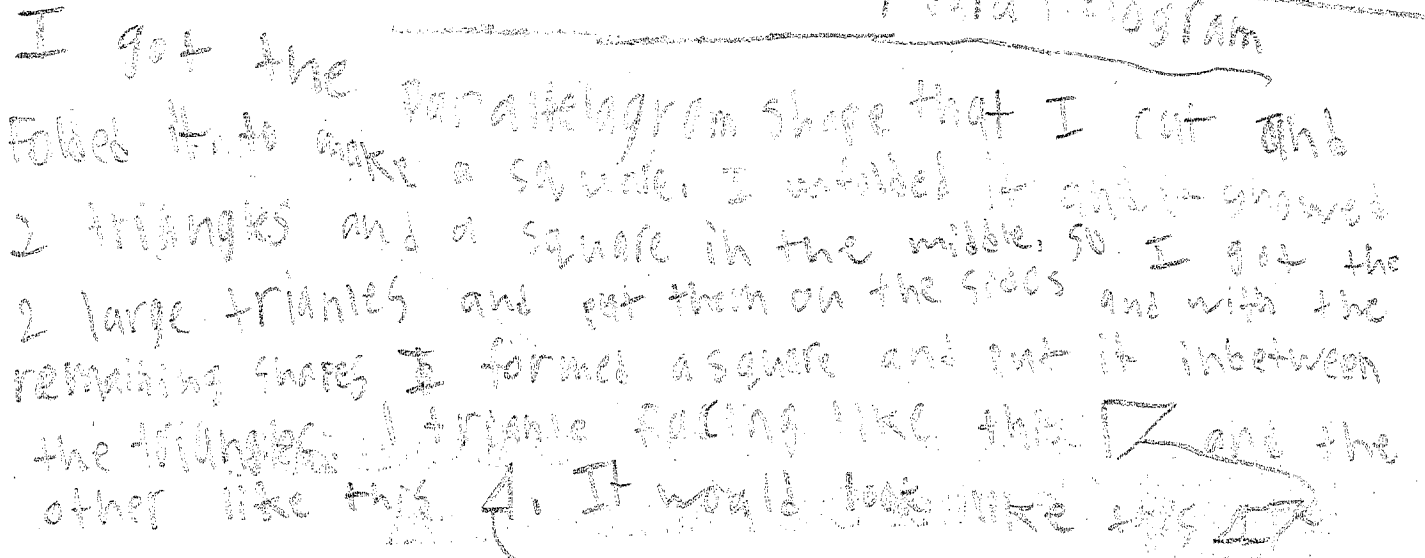 Parallelogram
I got the Parallelagram shape that I cut and
Folded it. to make a square. I unfolded it and it showed
2 triangles and a square in the middle. so I got the
2 large trianles and put them on the sides and with the
remaining shapes I formed a square and put it inbetween
the triangles. 1 trianle facing like this and the
other like this . It would look like this